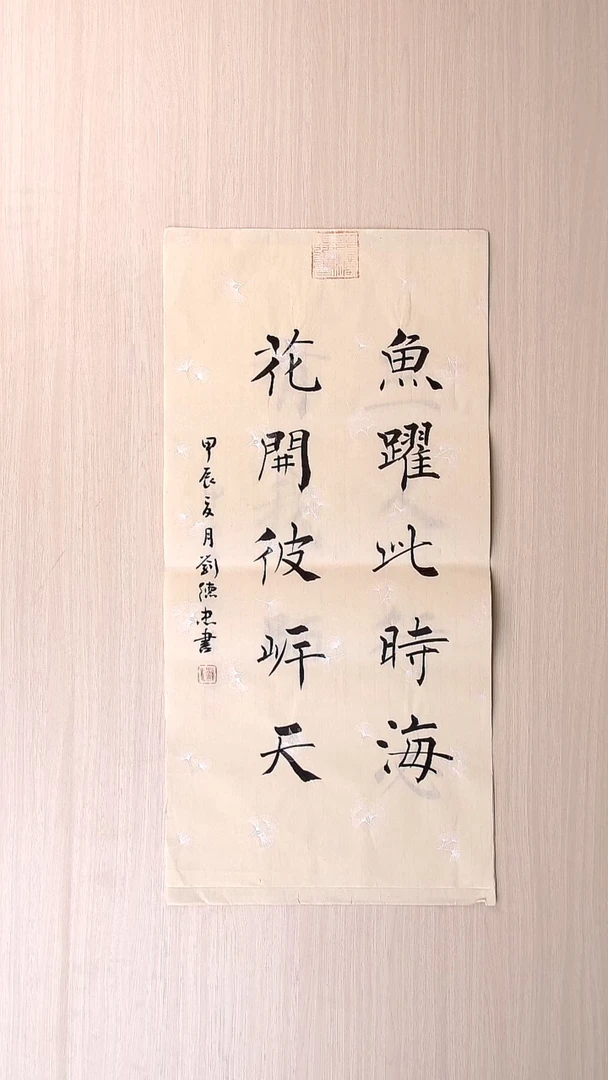 魚躍此時海
花開彼岸天
甲辰夏月劉德忠書